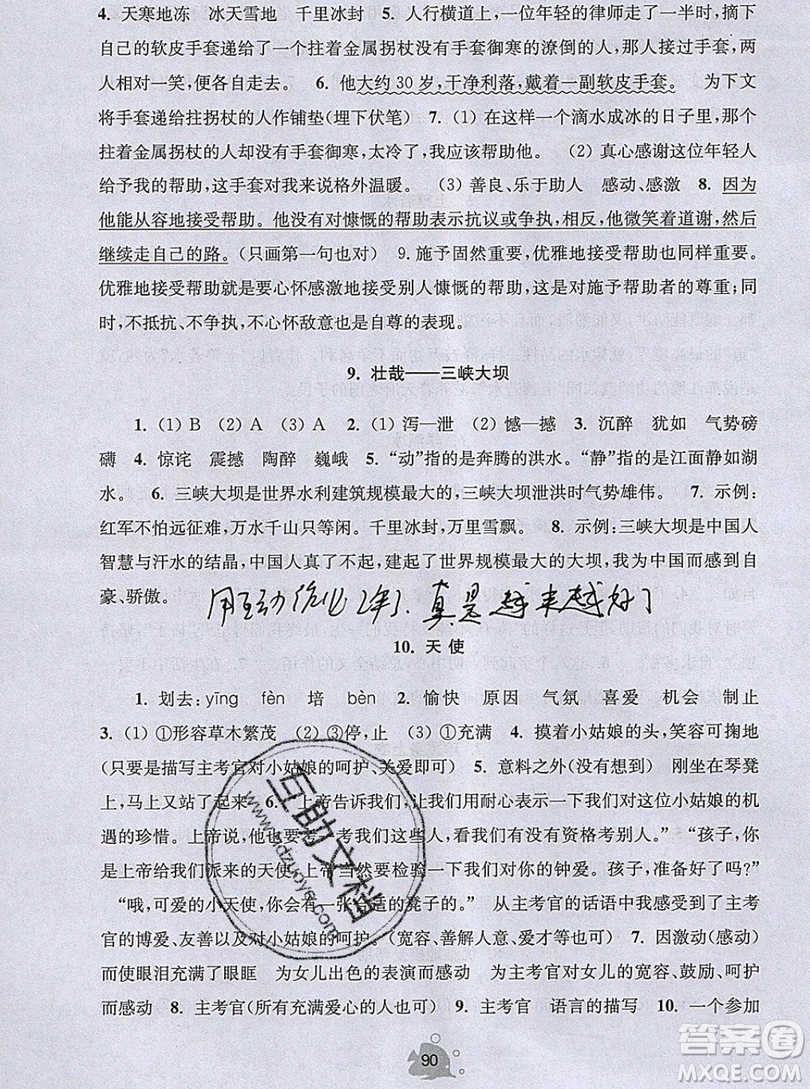 4. 天寒地冻　冰天雪地　千里冰封　5. 人行横道上，一位年轻的律师走了一半时，摘下
自己的软皮手套递给了一个拄着金属拐杖的没有手套御寒的潦倒的人，那人接过手套，两
人相对一笑，便各自走去。　6. 他大约 30 岁，干净利落，戴着一副软皮手套。　为下文
将手套递给拄拐杖的人作铺垫(埋下伏笔)　7. (1) 在这样一个滴水成冰的日子里，那个
拄着金属拐杖的人却没有手套御寒，太冷了，我应该帮助他。　(2) 真心感谢这位年轻人
给予我的帮助，这手套对我来说格外温暖。　(3) 善良、乐于助人　感动、感激　8. 因为
他能从容地接受帮助。他没有对慷慨的帮助表示抗议或争执，相反，他微笑着道谢，然后
继续走自己的路。(只画第一句也对)　9. 施予固然重要，优雅地接受帮助也同样重要。
优雅地接受帮助是要心怀感激地接受别人慷慨的帮助，这是对施予帮助者的尊重；同
时，不抵抗、不争执，不心怀敌意也是自尊的表现。
9. 壮哉——三峡大坝
1. (1) B　(2) A　(3) A　2. (1) 泻—泄　(2) 憾—撼　3. 沉醉　犹如　气势磅
礴　4. 惊诧　震撼　陶醉　巍峨　5. “动”指的是奔腾的洪水。“静”指的是江面静如湖
水。　6. 三峡大坝是世界水利建筑规模最大的，三峡大坝泄洪时气势雄伟。　7. 示例：
红军不怕远征难，万水千山只等闲。千里冰封，万里雪飘。　8. 示例：三峡大坝是中国人
智慧与汗水的结晶，中国人真了不起，建起了世界规模最大的大坝，我为中国而感到自
豪、骄傲。
用互动作业2年了，真是越来越好了
10. 天 使
1. 划去：yīng　fèn　培　bèn　2. 愉快　原因　气氛　喜爱　机会　制止
3. (1) ①形容草木繁茂　(2) ③停，止　(3) ①充满　4. 摸着小姑娘的头，笑容可掬地
(只要是描写主考官对小姑娘的呵护、关爱即可)　5. 意料之外(没想到)　刚坐在琴凳
上，马上又站了起来　6. “上帝告诉我们，让我们用耐心表示一下我们对这位小姑娘的机
遇的珍惜。上帝说，他也要考一考我们这些人，看我们有没有资格考别人。”　“孩子，你是
上帝给我们派来的天使，上帝当然要检验一下我们对你的钟爱。孩子，准备好了吗？”
“哦，可爱的小天使，你会有一张合适的凳子的。”　从主考官的话语中我感受到了主考
官的博爱、友善以及对小姑娘的呵护。(宽容、善解人意、爱才等也可)　7. 因激动(感动)
而使眼泪充满了眼眶　为女儿出色的表演而感动　为主考官对女儿的宽容、鼓励、呵护
而感动　8. 主考官(所有充满爱心的人也可)　9. 主考官　语言的描写　10. 一个参加
互助文档
www.hdzuoye.com
答案圈
MXQE.COM
90